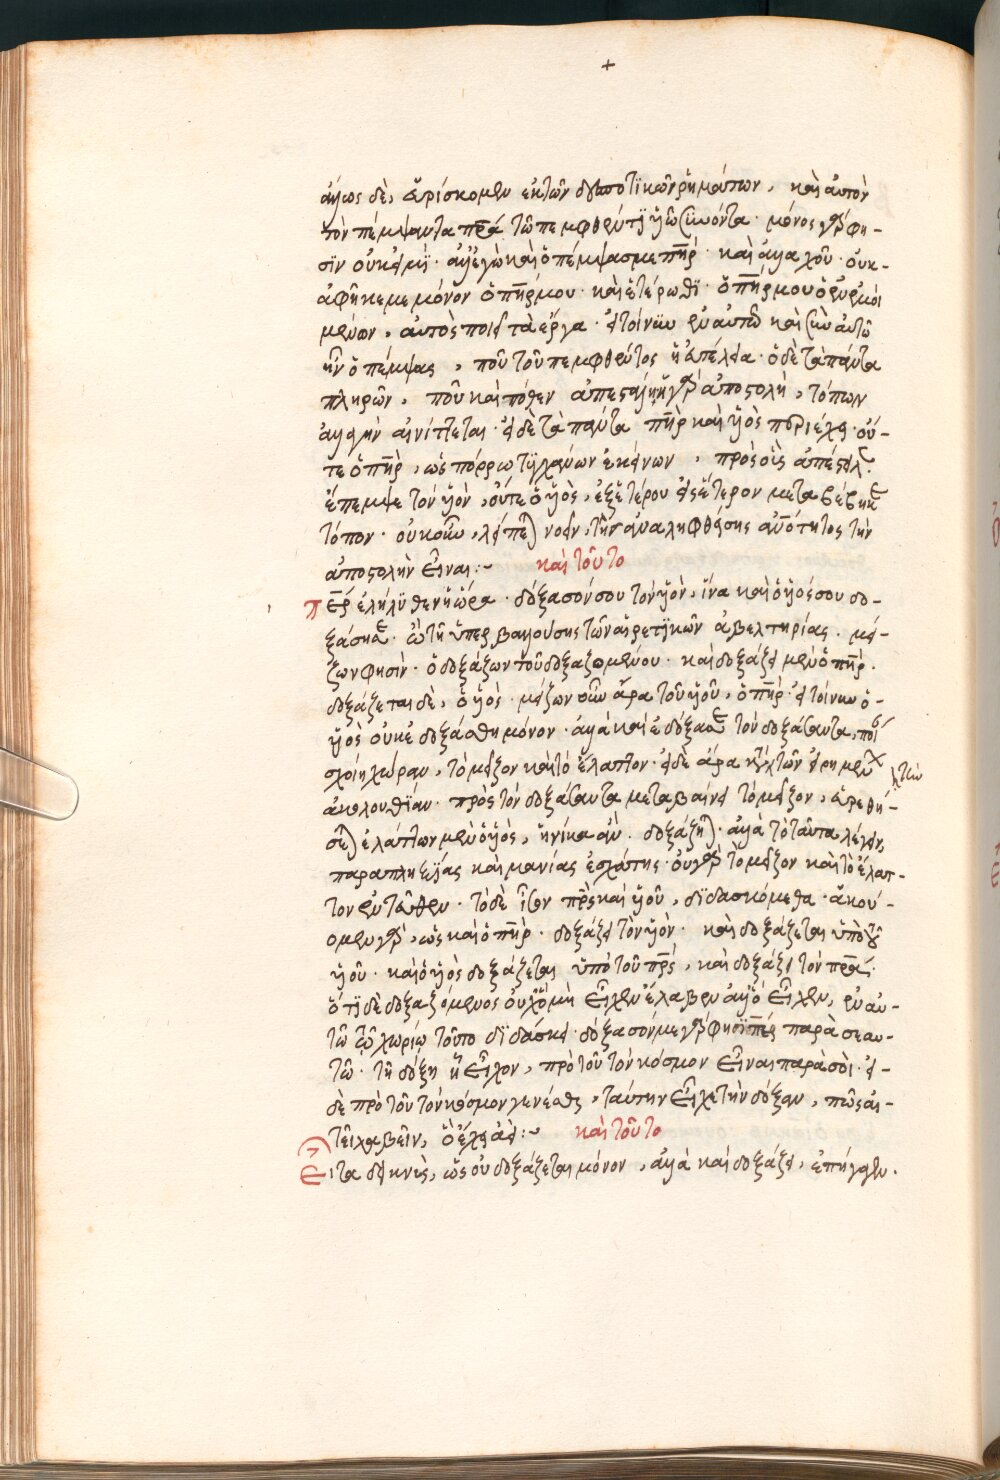 +
ἄλλως δὲ, εὑρίσκομεν ἐκ τῶν δεσποτικῶν ῥημάτων, καὶ αὐτὸν
τὸν πέμψαντα πρα τῶ πεμφθέντι υἱῶ συνόντα· μόνος γὰρ φη-
σὶν οὐκ εἰμὶ· ἀλλ' ἐγὼ καὶ ὁ πέμψας με πηρ· καὶ ἀλλαχοῦ· οὐκ-
ἀφῆκε με μόνον ὁ πηρ μου· καὶ ἑτέρωθι· ὁ πηρ μου ὁ ἐν ἐμοὶ
μένων, αὐτὸς ποιεῖ τὰ ἔργα· εἰ τοίνυν ἐν αὐτῶ καὶ σὺν αὐτῶ
ἦν ὁ πέμψας, ποῦ τοῦ πεμφθέντος ἡ ἀπέλευσις· ὁ δὲ τὰ πάντα
πληρῶν, ποῦ καὶ πόθεν ἀπεστάλη· ἡ γὰρ ἀποστολὴ, τόπων
ἀλλαγὴν αἰνίττεται· εἰ δὲ τὰ πάντα πηρ καὶ υἱὸς περιέχει· οὔ-
τε ὁ πηρ, ὡς πόρρω τυγχάνων ἐκείνων, πρὸς οἷς ἀπέστειλ
ἔπεμψε τὸν υἱὸν, οὔτε ὁ υἱὸς, ἐξ ἑτέρου εἰς ἕτερον μεταβέβηκε
τόπον· οὐκοῦν, λείπεται νοεῖν, τῆς ἀναληφθείσης ἀνότητος τὴν
ἀποστολὴν εἶναι:~ καὶ τοῦτο
Περ ἐλήλυθεν ἡ ὥρα· δόξασόν σου τὸν υἱὸν, ἵνα καὶ ὁ υἱός σου δο-
ξάσῃ σε· ὢ τῆς ὑπερβαλλούσης τῶν αἱρετικῶν ἀβελτηρίας· μεί-
ζων φησὶν· ὁ δοξάζων τοῦ δοξαζομένου· καὶ δοξάζει μὲν ὁ πηρ·
δοξάζεται δὲ, ὁ υἱὸς· μείζων οὖν ἄρα τοῦ υἱοῦ, ὁ πηρ· εἰ τοίνυν ὁ-
υἱὸς οὐκ ἐδοξάσθη μόνον· ἀλλὰ καὶ ἐδόξασε τὸν δοξάσαντα, ποί
σχοίη χώραν, τὸ μεῖζον καὶ τὸ ἔλαττον· εἰ δὲ ἄρα κατὰ τῶν εἰρημένων
τὴν
ἀκολουθίαν· πρὸς τὸν δοξάσαντα μεταβαίνει τὸ μεῖζον, εὑρεθή-
σεται ἐλάττων μὲν ὁ υἱὸς, ἡνίκα ἂν δοξάζηται· ἀλλὰ τὸ ταῦτα λέγειν,
παραπληξίας καὶ μανίας ἐσχάτης· οὐ γὰρ τὸ μεῖζον καὶ τὸ ἔλατ-
τον ἐντεῦθεν· τὸ δὲ ἶσον πρς καὶ υἱοῦ, διδασκόμεθα· ἀκού-
ομεν γὰρ, ὡς καὶ ὁ πηρ· δοξάζει τὸν υἱὸν· καὶ δοξάζεται ὑπὸ τοῦ
υἱοῦ· καὶ ὁ υἱὸς δοξάζεται ὑπὸ τοῦ πρς, καὶ δοξάζει τὸν πρα·
ὅτι δὲ δοξαζόμενος οὐχ ὃ μὴ εἶχεν ἔλαβεν ἀλλ' ὃ εἶχεν, ἐν αὐ-
τῶ τῶ χωρίω τοῦτο διδάσκει· δόξασόν με γάρ φησι περ παρὰ σεαυ-
τῶ· τῇ δόξῃ ᾗ εἶχον, πρὸ τοῦ τὸν κόσμον εἶναι παρὰ σοὶ· εἰ-
δὲ πρὸ τοῦ τὸν κόσμον γενέσθαι, ταύτην εἶχε τὴν δόξαν, πῶς αἰ-
τεῖ λαβεῖν, ὃ ἔχει ἀεὶ:~ καὶ τοῦτο
Εἶτα δεικνὺς, ὡς οὐ δοξάζεται μόνον, ἀλλὰ καὶ δοξάζει, ἐπήγαγεν·